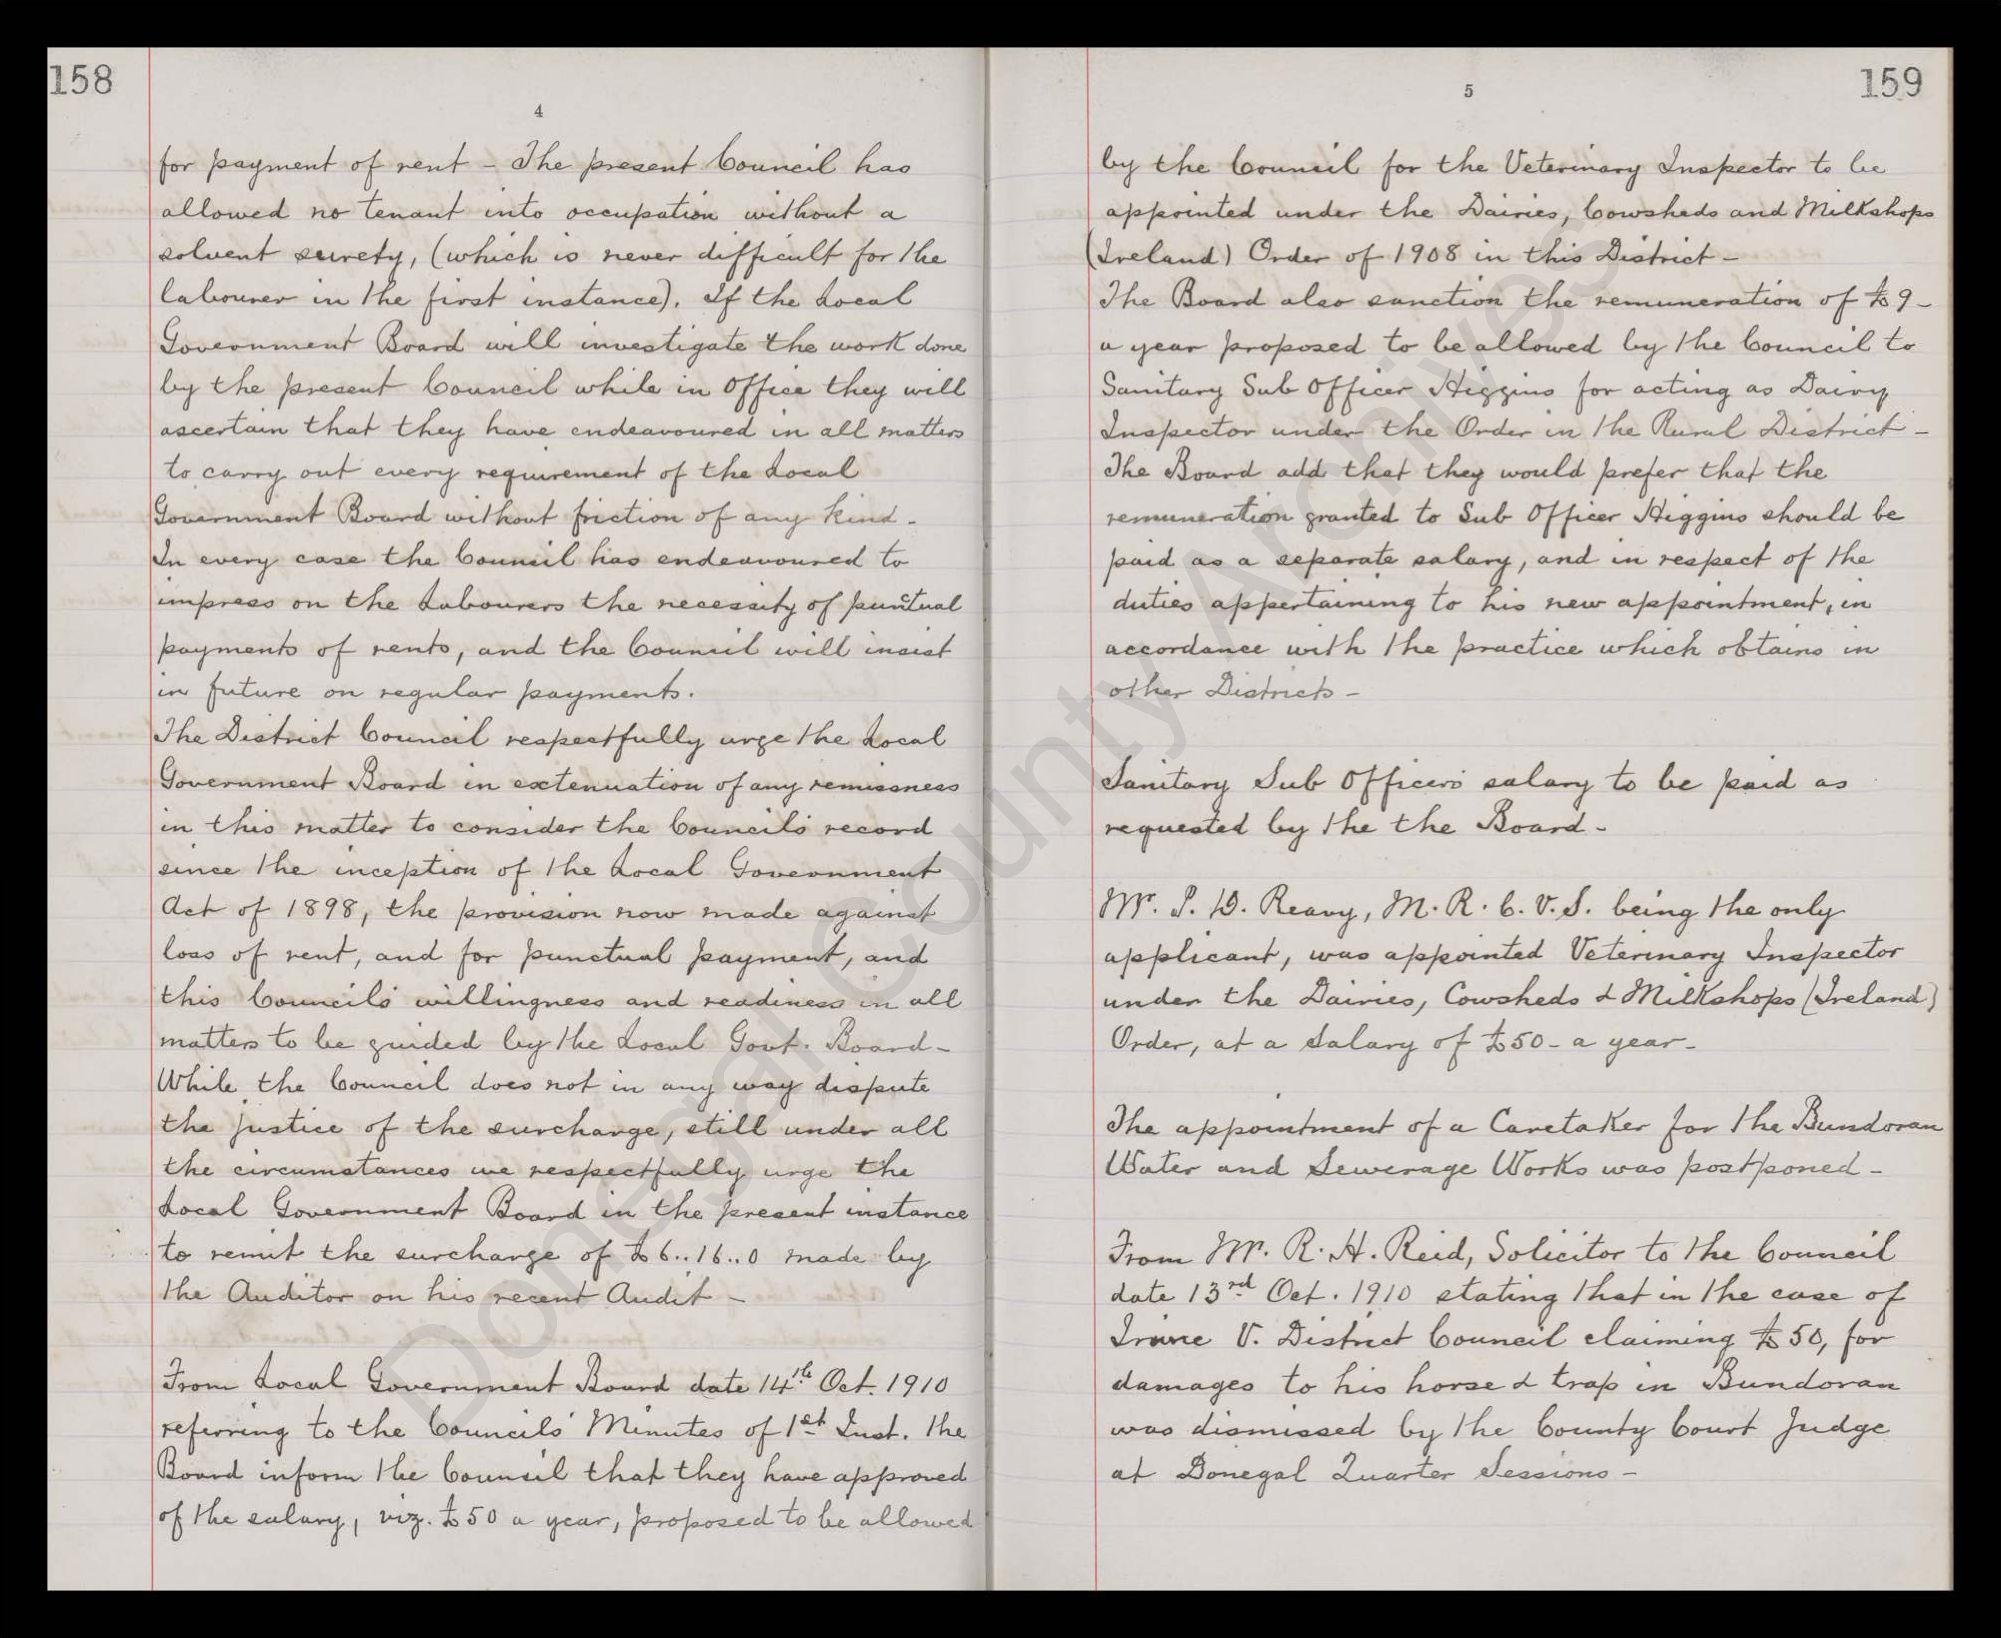 158
4
for payment of rent – The present Council has
allowed no tenant into occupation without a
solvent surety, (which is never difficult for the
labourer in the first instance). If the Local
Government Board will investigate the work done
by the present Council while in Office they will
ascertain that they have endeavoured in all matters
to carry out every requirement of the Local
Government Board without friction of any kind –
In every case the Council has endeavoured to
impress on the Labourers the necessity of punctual
payments of rents, and the Council will insist
in future on regular payments.
The District Council respectfully urge the Local
Government Board in extenuation of any remissness
in this matter to consider the Council's record
since the inception of the Local Government
Act of 1898, the provision now made against
loss of rent, and for punctual payment, and
this Council's willingness and readiness in all
matters to be guided by the Local Govt. Board –
While the Council does not in any way dispute
the justice of the surcharge, still under all
the circumstances we respectfully urge the
Local Government Board in the present instance
to remit the surcharge of £6..16..0 made by
the Auditor on his recent Audit –
From Local Government Board date 14th Oct. 1910
referring to the Councils' Minutes of 1st Inst. the
Board inform the Council that they have approved
of the salary, viz. £50 a year, proposed to be allowed
159
5
by the Council for the Veterinary Inspector to be
appointed under the Dairies, Cowsheds and Milkshops
(Ireland) Order of 1908 in this District –
The Board also sanction the remuneration of £9 –
a year proposed to be allowed by the Council to
Sanitary Sub Officer Higgins for acting as Dairy
Inspector under the Order in the Rural District –
The Board add that they would prefer that the
remuneration granted to Sub Officer Higgins should be
paid as a separate salary, and in respect of the
duties appertaining to his new appointment, in
accordance with the practice which obtains in
other Districts –
Sanitary Sub Officers' salary to be paid as
requested by the the Board –
Mr. P. D. Reavy, M. R. C. V. S. being the only
applicant, was appointed Veterinary Inspector
under the Dairies, Cowsheds & Milkshops (Ireland)
Order, at a Salary of £50 – a year –
The appointment of a Caretaker for the Bundoran
Water and Sewerage Works was postponed –
From Mr. R. H. Reid, Solicitor to the Council
date 13rd Oct. 1910 stating that in the case of
Irvine V. District Council claiming £50, for
damages to his horse & trap in Bundoran
was dismissed by the County Court Judge
at Donegal Quarter Sessions –
Donegal County Archives